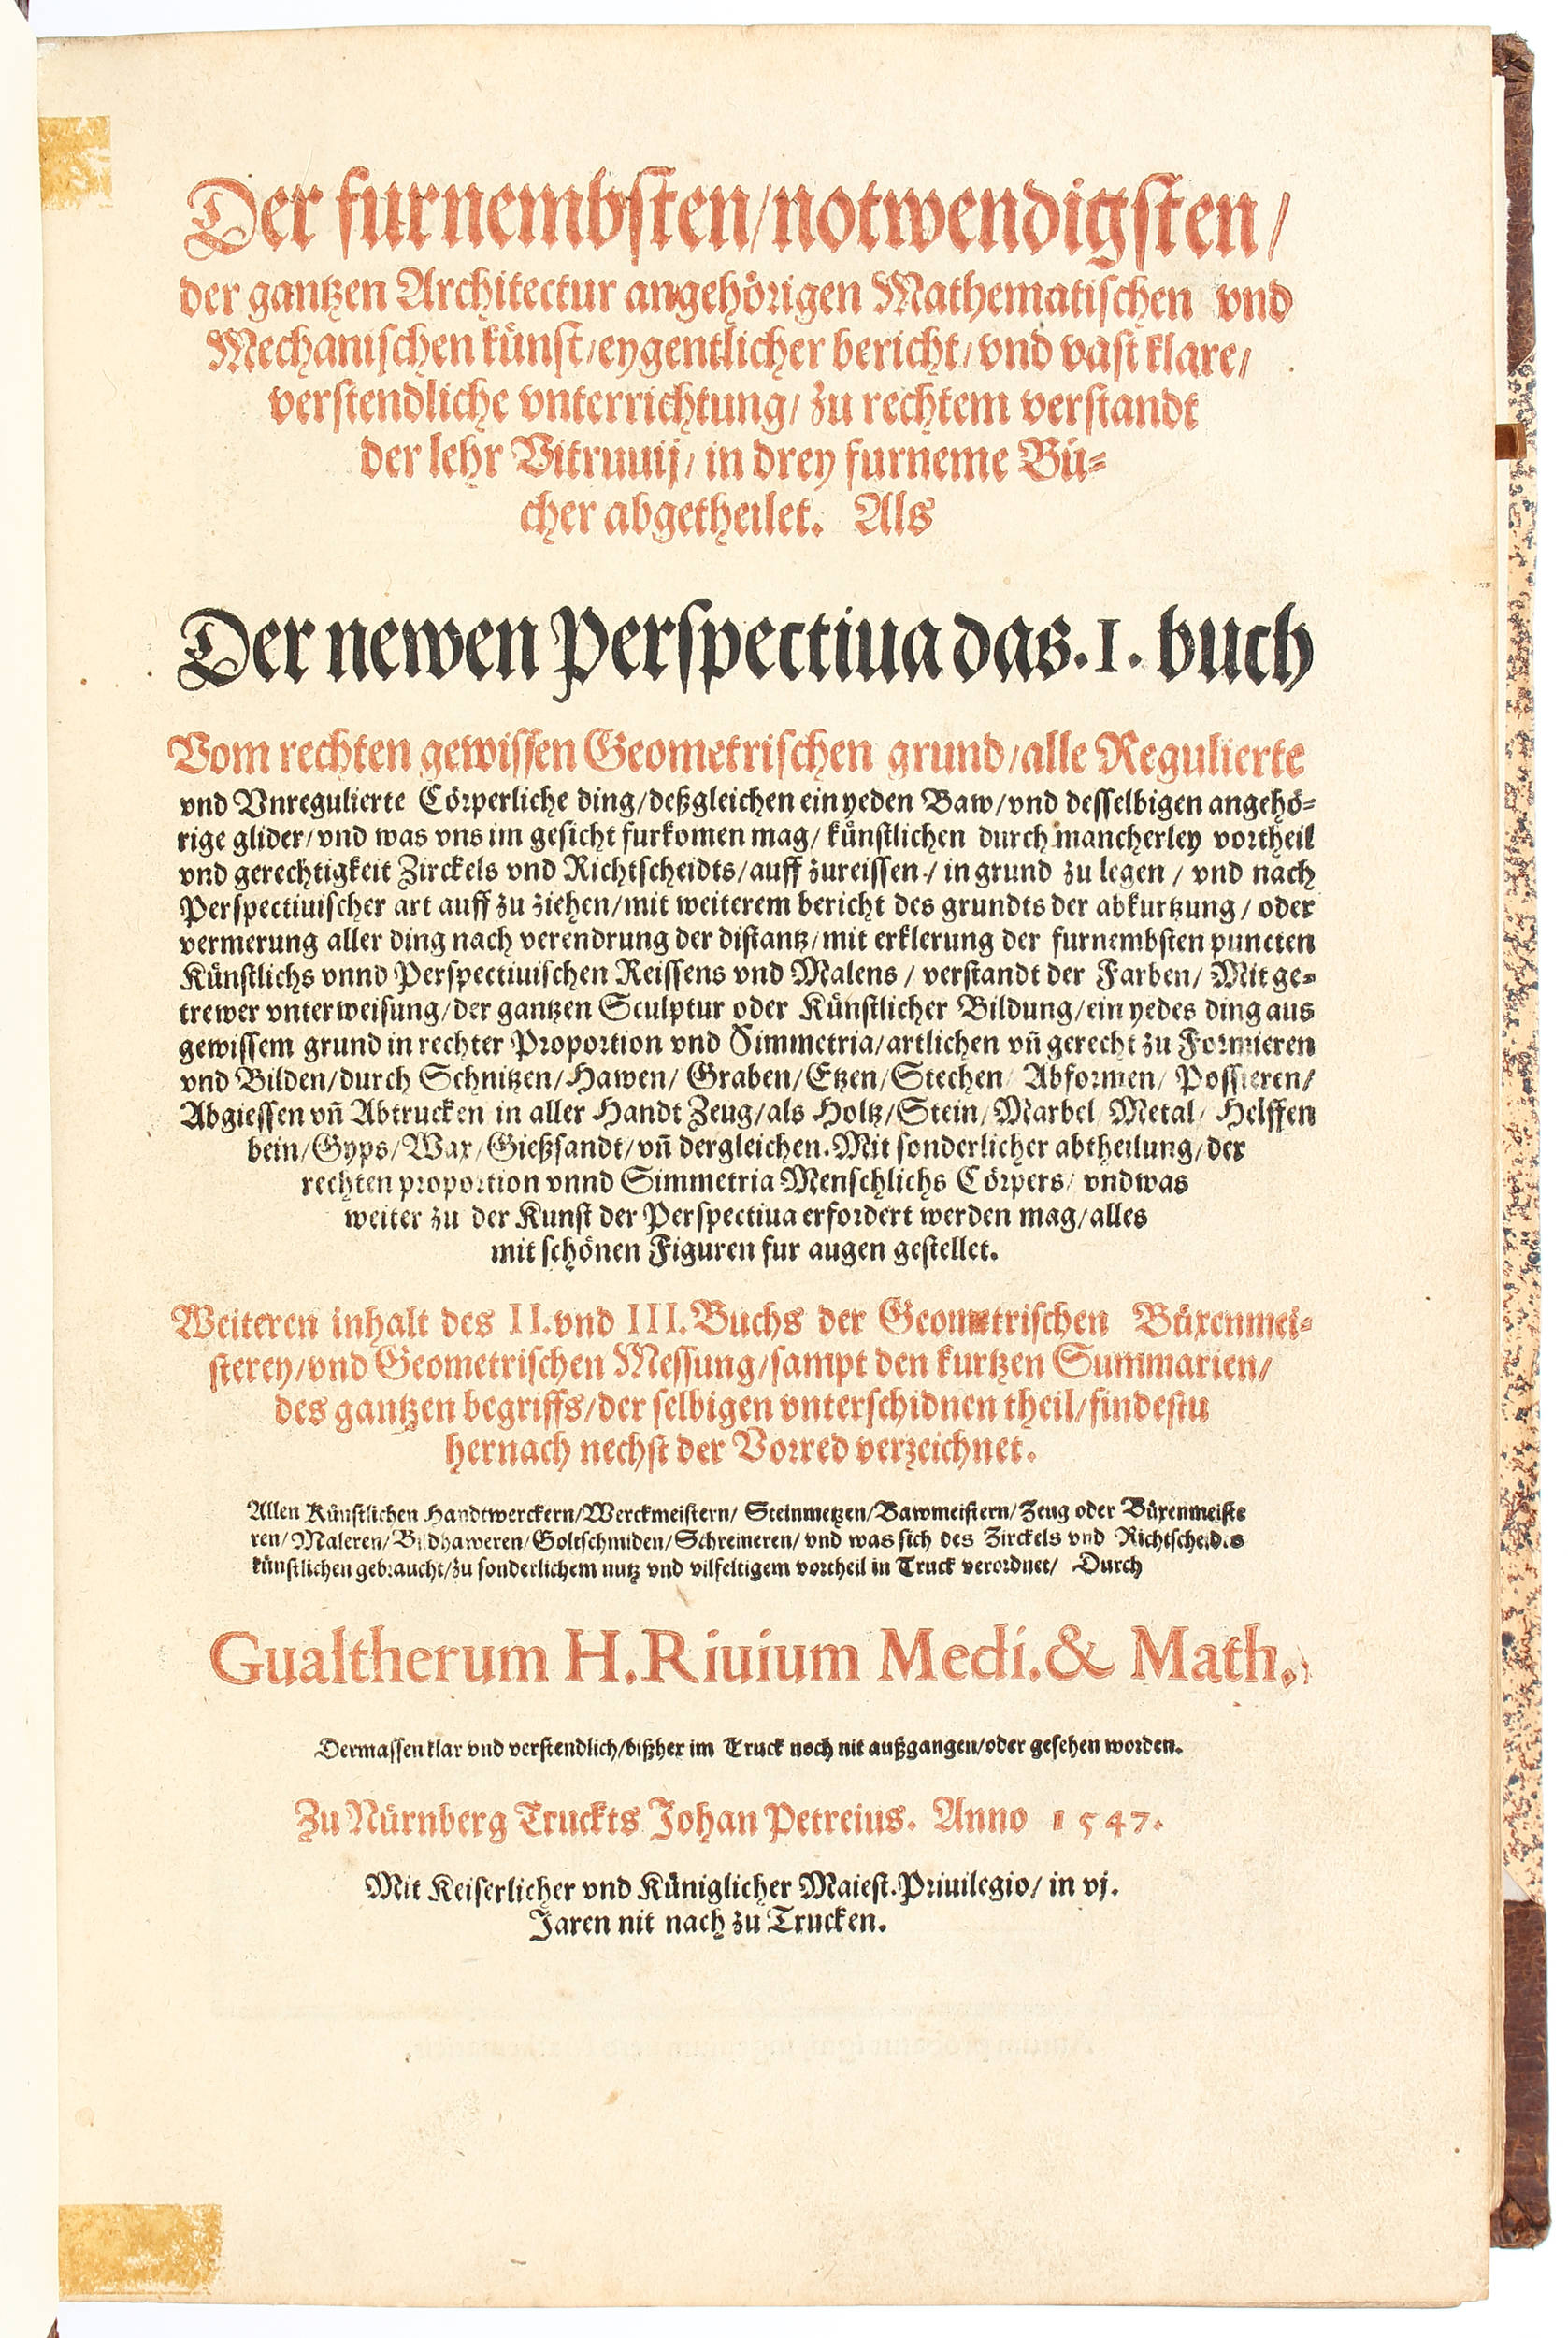 Der furnembsten/notwendigsten/
der gantzen Architectur angehörigen Mathematischen vnd
Mechanischen künst/eygentlicher bericht/vnd vast klare/
verstendliche vnterrichtung/zu rechtem verstandt
der lehr Vitruuij/in drey furneme Bü=
cher abgetheilet. Als
Der newen Perspectiua das.I.buch
Vom rechten gewissen Geometrischen grund/alle Regulierte
vnd Vnregulierte Cörperliche ding/deßgleichen ein yeden Baw/vnd desselbigen angehö=
rige glider/vnd was vns im gesicht furkomen mag/künstlichen durch mancherley vortheil
vnd gerechtigkeit Zirckels vnd Richtscheidts/auff zureissen/in grund zu legen/vnd nach
Perspectiuischer art auff zu ziehen/mit weiterem bericht des grundts der abkurtzung/oder
vermerung aller ding nach verendrung der distantz/mit erklerung der furnembsten puncten
Künstlichs vnnd Perspectiuischen Reissens vnd Malens/verstandt der Farben/Mit ge=
trewer vnterweisung/der gantzen Sculptur oder Künstlicher Bildung/ein yedes ding aus
gewissem grund in rechter Proportion vnd Simmetria/artlichen vñ gerecht zu Formieren
vnd Bilden/durch Schnitzen/Hawen/Graben/Etzen/Stechen/Abformen/Possieren/
Abgiessen vñ Abtrucken in aller Handt Zeug/als Holtz/Stein/Marbel/Metal/Helffen
bein/Gyps/Wax/Gießsandt/vñ dergleichen. Mit sonderlicher abtheilung/der
rechten proportion vnnd Simmetria Menschlichs Cörpers/vnd was
weiter zu der Kunst der Perspectiua erfordert werden mag/alles
mit schönen Figuren fur augen gestellet.
Weiteren inhalt des II.vnd III.Buchs der Geometrischen Büxenmei=
sterey/vnd Geometrischen Messung/sampt den kurtzen Summarien/
des gantzen begriffs/der selbigen vnterschidnen theil/findestu
hernach nechst der Vorred verzeichnet.
Allen Künstlichen Handtwerckern/Werckmeistern/Steinmetzen/Bawmeistern/Zeug oder Büxenmeiste
ren/Maleren/Bildhaweren/Goltschmiden/Schreineren/vnd was sich des Zirckels vnd Richtscheidts
künstlichen gebraucht/zu sonderlichem nutz vnd vilfeltigem vortheil in Truck verordnet/Durch
Gualtherum H.Riuium Medi.& Math.
Dermassen klar vnd verstendlich/bißher im Truck noch nit außgangen/oder gesehen worden.
Zu Nürnberg Truckts Johan Petreius. Anno 1547.
Mit Keiserlicher vnd Küniglicher Maiest.Priuilegio/in vj.
Jaren nit nach zu Trucken.